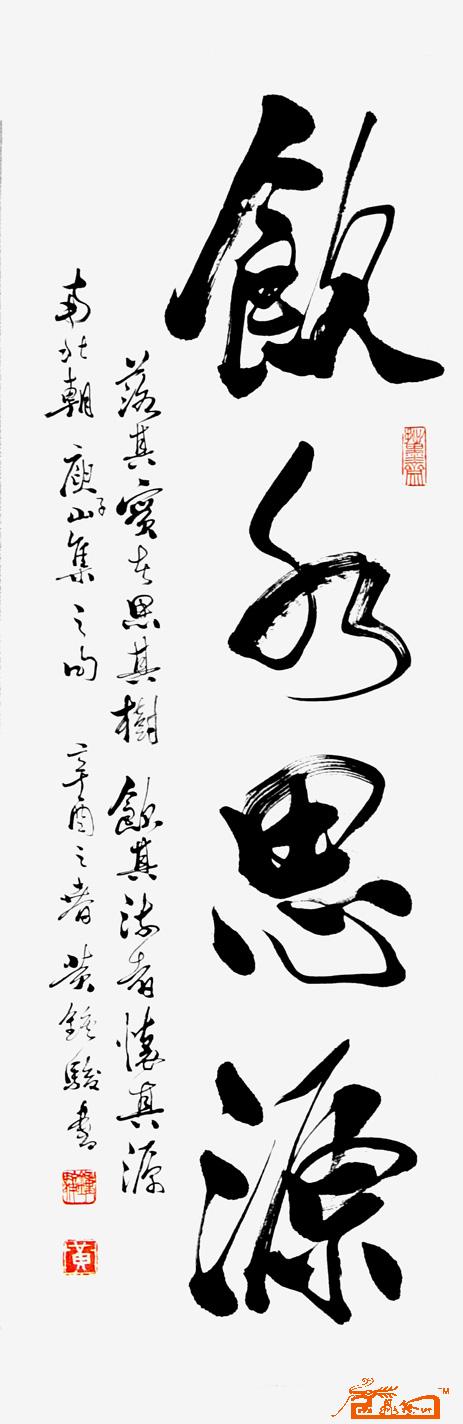 飲水思源
落其實者思其樹 飲其流者懷其源
南北朝 庾子山集之句 辛酉之春 黄駿書
黄